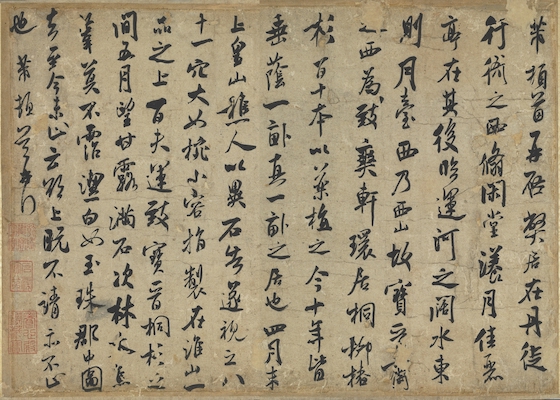 芾頓首再啟弊居在丹徒
行衙之西翛閑堂漾月佳麗
亭在其後臨運河之闊水東
則月臺西乃西山故寶晉齋
之西為致爽軒環居桐柳椿
杉百十本以藥植之今十年皆
垂蔭一畝真一畝之居也四月末
上皇山樵人以異石告遂視之八
十一穴大如椀小容指製在淮山一
品之上百夫運致寶晉桐杉之
間五月望甘露滿石次林木焦
葦莫不霑潔白如玉珠郡中圖
去至今未止云欲上既不請亦不止
也芾頓首